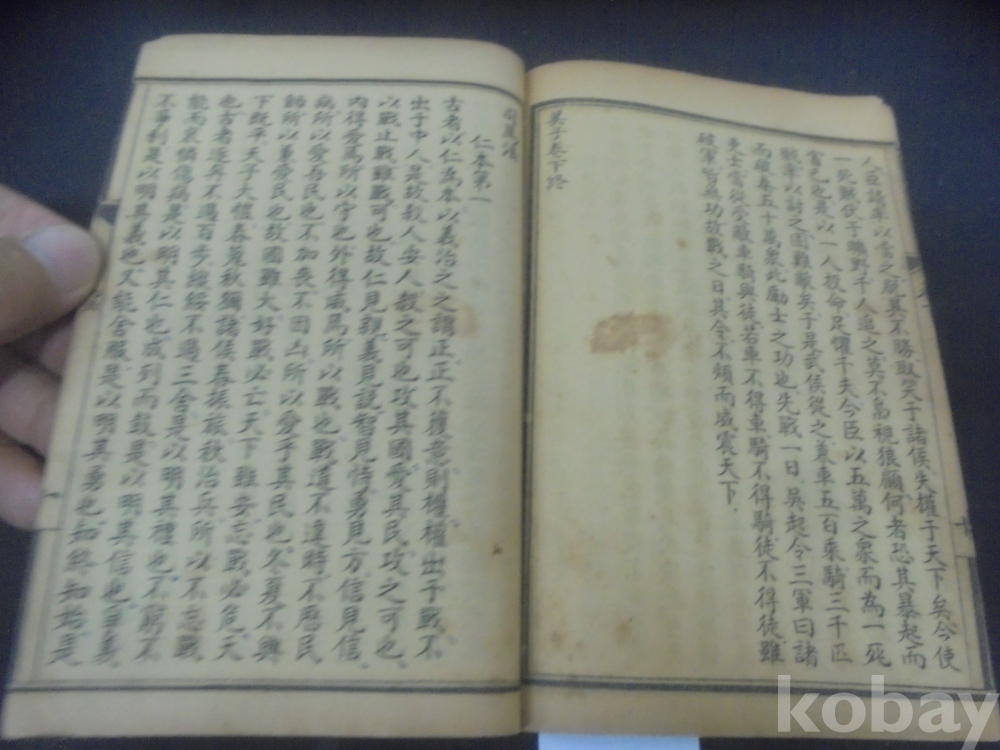 人臣請率以當之脫其不勝取笑于諸侯失權于天下矣今使
一死賊伏于曠野千人追之莫不梟視狼顧何者恐其暴起而
害己也是以一人投命足懼千夫今臣以五萬之衆而為一死
賊率以討之固難敵矣于是武侯從之兼車五百乘騎三千匹
而破秦五十萬衆此勵士之功也先戰一日吳起令三軍曰諸
吏士當從受敵車騎與徒若車不得車騎不得騎徒不得徒雖
破軍皆無功故戰之日其令不煩而威震天下
吳子卷下終
司馬法
仁本第一
古者以仁為本以義治之之謂正正不獲意則權權出于戰不
出于中人是故殺人安人殺之可也攻其國愛其民攻之可也
以戰止戰雖戰可也故仁見親義見說智見恃勇見方信見信
内得愛焉所以守也外得威焉所以戰也戰道不違時不歷民
病所以愛吾民也不加喪不因凶所以愛乎其民也冬夏不興
師所以兼愛民也故國雖大好戰必亡天下雖安忘戰必危天
下既平天子大愷春蒐秋獮諸侯春振旅秋治兵所以不忘戰
也古者逐奔不過百步縱綏不過三舍是以明其禮也不窮不
能而哀憐傷病是以明其仁也成列而鼓是以明其信也爭義
不爭利是以明其義也又能舍服是以明其勇也知終知始是